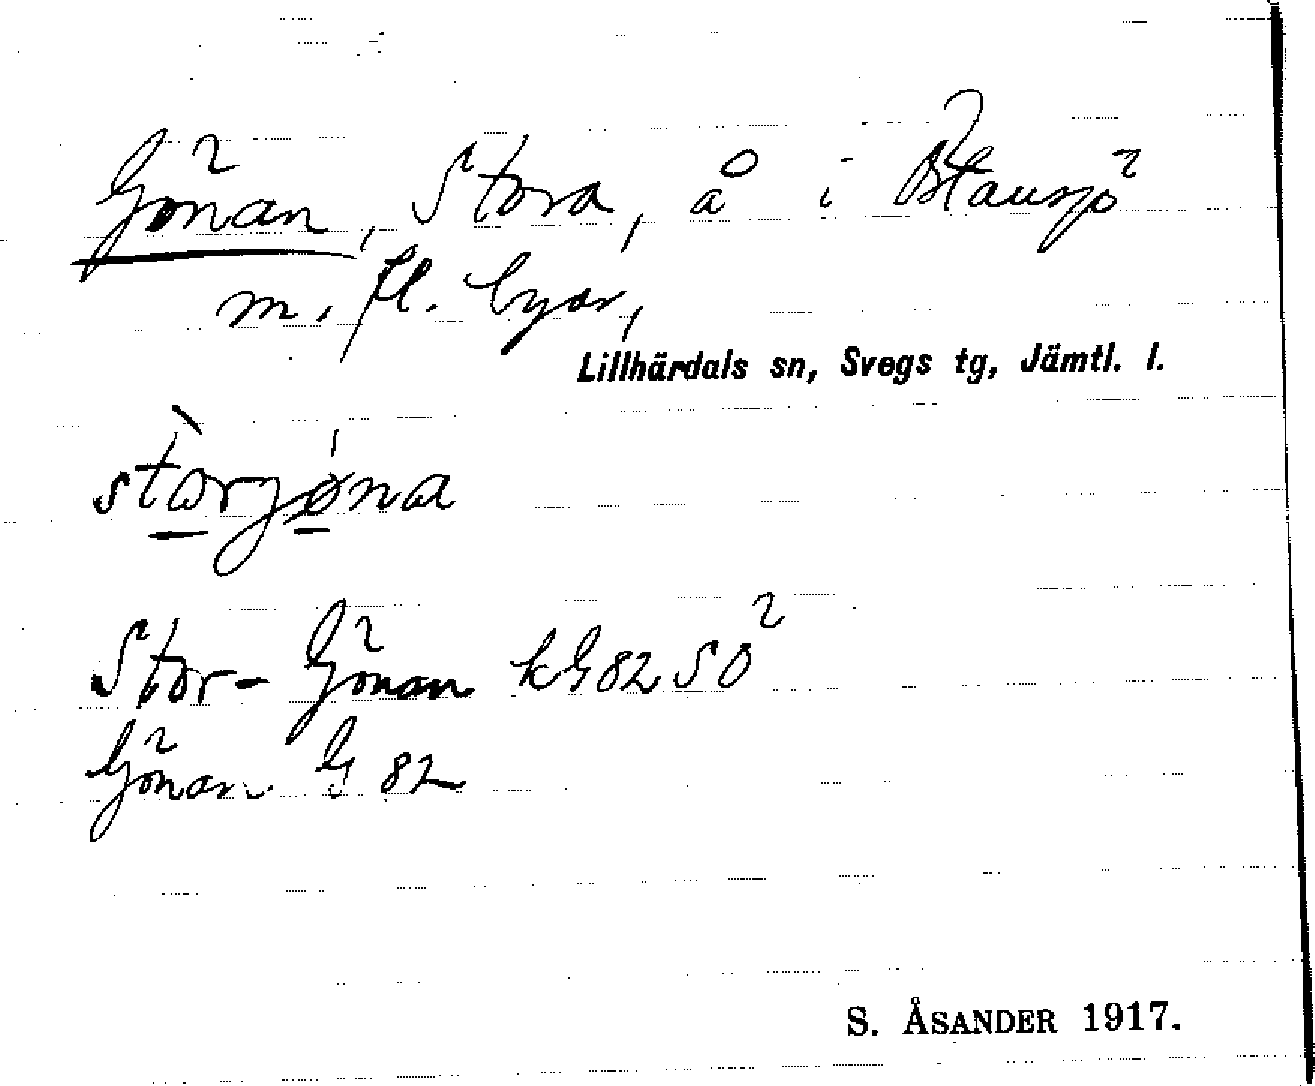 Gönan, Stora, å i Blausjö
m. fl. byar,
Lillhärdals sn, Svegs tg, Jämtl. l.
stòrjǿna
Stor-Gönan kG82SO
Gönan G 82
S. ÅSANDER 1917.